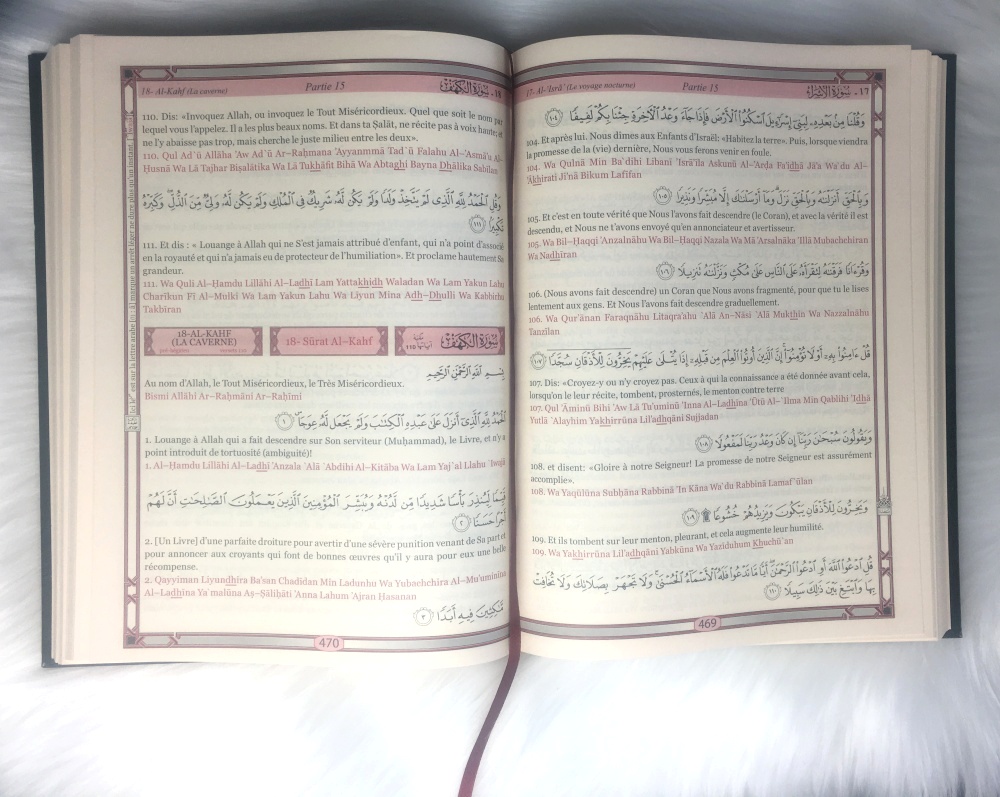 17- Al-'Isrâ' (Le voyage nocturne) Partie 15 ١٧ - سورة الإسراء
وَقُلْنَا مِنْ بَعْدِهِ لِبَنِي إِسْرَائِيلَ اسْكُنُوا الْأَرْضَ فَإِذَا جَاءَ وَعْدُ الْآخِرَةِ جِئْنَا بِكُمْ لَفِيفًا ١٠٤
104. Et après lui. Nous dimes aux Enfants d'Israël: «Habitez la terre». Puis, lorsque viendra
la promesse de la (vie) dernière, Nous vous ferons venir en foule.
104. Wa Qulnā Min Ba`dihi Libanī 'Isrā'īla Askunū Al-'Arđa Fa'idhā Jā'a Wa`du Al-
'Ākhirati Ji'nā Bikum Lafīfan
وَبِالْحَقِّ أَنْزَلْنَاهُ وَبِالْحَقِّ نَزَلَ وَمَا أَرْسَلْنَاكَ إِلَّا مُبَشِّرًا وَنَذِيرًا ١٠٥
105. Et c'est en toute vérité que Nous l'avons fait descendre (le Coran), et avec la vérité il est
descendu, et Nous ne t'avons envoyé qu'en annonciateur et avertisseur.
105. Wa Bil-Ĥaqqi 'Anzalnāhu Wa Bil-Ĥaqqi Nazala Wa Mā 'Arsalnāka 'Illā Mubachchiran
Wa Nadhīran
وَقُرْآنًا فَرَقْنَاهُ لِتَقْرَأَهُ عَلَى النَّاسِ عَلَى مُكْثٍ وَنَزَّلْنَاهُ تَنْزِيلًا ١٠٦
106. (Nous avons fait descendre) un Coran que Nous avons fragmenté, pour que tu le lises
lentement aux gens. Et Nous l'avons fait descendre graduellement.
106. Wa Qur'ānan Faraqnāhu Litaqra'ahu `Alá An-Nāsi `Alá Mukthin Wa Nazzalnāhu
Tanzīlan
قُلْ آمِنُوا بِهِ أَوْ لَا تُؤْمِنُوا إِنَّ الَّذِينَ أُوتُوا الْعِلْمَ مِنْ قَبْلِهِ إِذَا يُتْلَى عَلَيْهِمْ يَخِرُّونَ لِلْأَذْقَانِ سُجَّدًا ١٠٧
107. Dis: «Croyez-y ou n'y croyez pas. Ceux à qui la connaissance a été donnée avant cela,
lorsqu'on leur récite, tombent, prosternés, le menton contre terre
107. Qul 'Āminū Bihi 'Aw Lā Tu'uminū 'Inna Al-Ladhīna 'Ūtū Al-`Ilma Min Qablihi 'Idhā
Yutlá `Alayhim Yakhirrūna Lil'adhqāni Sujjadan
وَيَقُولُونَ سُبْحَانَ رَبِّنَا إِنْ كَانَ وَعْدُ رَبِّنَا لَمَفْعُولًا ١٠٨
108. et disent: «Gloire à notre Seigneur! La promesse de notre Seigneur est assurément
accomplie».
108. Wa Yaqūlūna Subĥāna Rabbinā 'In Kāna Wa`du Rabbinā Lamaf`ūlan
وَيَخِرُّونَ لِلْأَذْقَانِ يَبْكُونَ وَيَزِيدُهُمْ خُشُوعًا ۩ ١٠٩
109. Et ils tombent sur leur menton, pleurant, et cela augmente leur humilité.
109. Wa Yakhirrūna Lil'adhqāni Yabkūna Wa Yazīduhum Khuchū`an
قُلِ ادْعُوا اللَّهَ أَوِ ادْعُوا الرَّحْمَنَ أَيًّا مَا تَدْعُوا فَلَهُ الْأَسْمَاءُ الْحُسْنَى وَلَا تَجْهَرْ بِصَلَاتِكَ وَلَا تُخَافِتْ
بِهَا وَابْتَغِ بَيْنَ ذَلِكَ سَبِيلًا ١١٠
469
18- Al-Kahf (La caverne) Partie 15 ١٨ - سورة الكهف
110. Dis: «Invoquez Allah, ou invoquez le Tout Miséricordieux. Quel que soit le nom par
lequel vous l'appelez. Il a les plus beaux noms. Et dans ta Ṣalât, ne récite pas à voix haute; et
ne l'y abaisse pas trop, mais cherche le juste milieu entre les deux».
110. Qul Ad`ū Allāha 'Aw Ad`ū Ar-Raĥmana 'Ayyanmmā Tad`ū Falahu Al-'Asmā'u Al-
Ĥusná Wa Lā Tajhar Biṣalātika Wa Lā Tukhāfit Bihā Wa Abtaghi Bayna Dhālika Sabīlan
وَقُلِ الْحَمْدُ لِلَّهِ الَّذِي لَمْ يَتَّخِذْ وَلَدًا وَلَمْ يَكُنْ لَهُ شَرِيكٌ فِي الْمُلْكِ وَلَمْ يَكُنْ لَهُ وَلِيٌّ مِنَ الذُّلِّ وَكَبِّرْهُ
تَكْبِيرًا ١١١
111. Et dis : « Louange à Allah qui ne S'est jamais attribué d'enfant, qui n'a point d'associé
en la royauté et qui n'a jamais eu de protecteur de l'humiliation». Et proclame hautement Sa
grandeur.
111. Wa Quli Al-Ĥamdu Lillāhi Al-Ladhī Lam Yattakhidh Waladan Wa Lam Yakun Lahu
Charīkun Fī Al-Mulki Wa Lam Yakun Lahu Wa Līyun Mina Adh-Dhulli Wa Kabbirhu
Takbīran
18-AL-KAHF
(LA CAVERNE)
pré-hégirien versets 110
18- Sūrat Al-Kahf
سورة الكهف مكية آياتها ١١٠
بِسْمِ اللَّهِ الرَّحْمَنِ الرَّحِيمِ
Au nom d'Allah, le Tout Miséricordieux, le Très Miséricordieux.
Bismi Allāhi Ar-Raĥmāni Ar-Raĥīmi
الْحَمْدُ لِلَّهِ الَّذِي أَنْزَلَ عَلَى عَبْدِهِ الْكِتَابَ وَلَمْ يَجْعَلْ لَهُ عِوَجًا ١
1. Louange à Allah qui a fait descendre sur Son serviteur (Muḥammad), le Livre, et n'y a
point introduit de tortuosité (ambiguïté)!
1. Al-Ĥamdu Lillāhi Al-Ladhī 'Anzala `Alá `Abdihi Al-Kitāba Wa Lam Yaj`al Llahu `Iwajā
قَيِّمًا لِيُنْذِرَ بَأْسًا شَدِيدًا مِنْ لَدُنْهُ وَيُبَشِّرَ الْمُؤْمِنِينَ الَّذِينَ يَعْمَلُونَ الصَّالِحَاتِ أَنَّ لَهُمْ
أَجْرًا حَسَنًا ٢
2. [Un Livre] d'une parfaite droiture pour avertir d'une sévère punition venant de Sa part et
pour annoncer aux croyants qui font de bonnes œuvres qu'il y aura pour eux une belle
récompense.
2. Qayyiman Liyundhira Ba'san Chadīdan Min Ladunhu Wa Yubachchira Al-Mu'uminīna
Al-Ladhīna Ya`malūna Aş-Şāliĥāti 'Anna Lahum 'Ajran Ĥasanan
مَاكِثِينَ فِيهِ أَبَدًا ٣
470